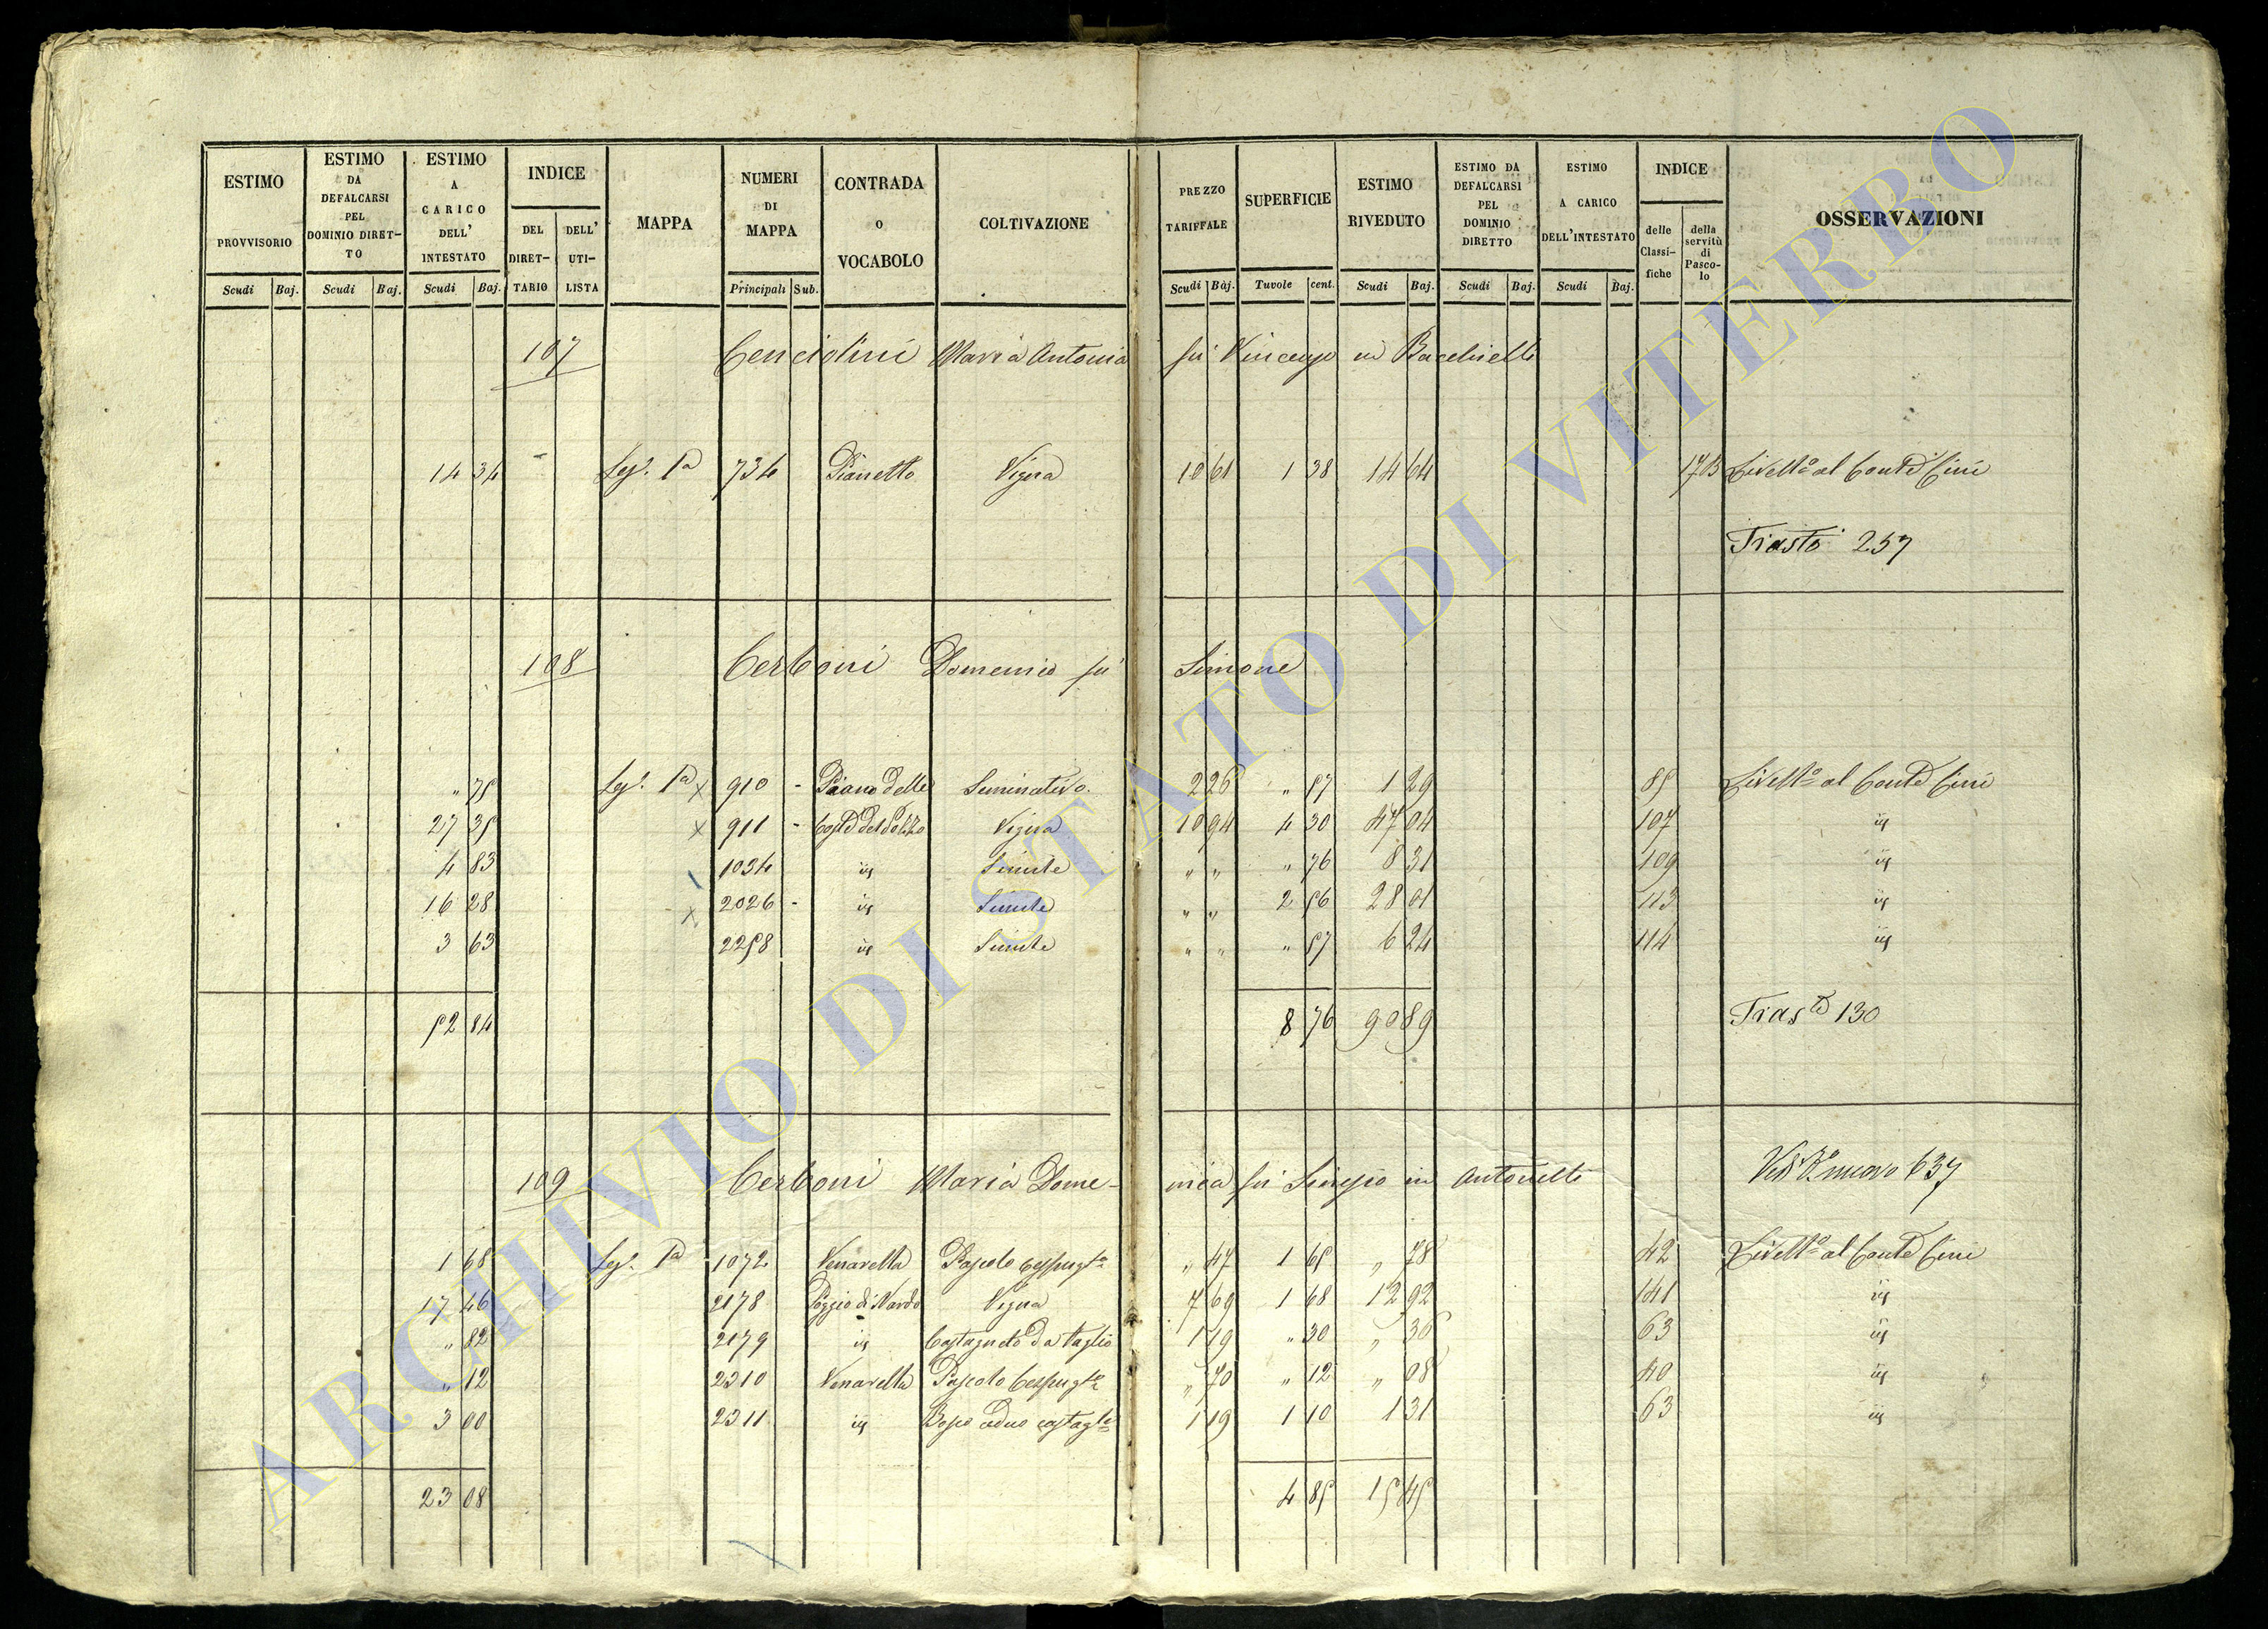 ESTIMO PROVVISORIO | ESTIMO DA DEFALCARSI PEL DOMINIO DIRET-TO | ESTIMO A CARICO DELL' INTESTATO | INDICE DEL DIRET-TARIO | DELL' UTI-LISTA | MAPPA | NUMERI DI MAPPA | CONTRADA O VOCABOLO | COLTIVAZIONE | PREZZO TARIFFALE | SUPERFICIE | ESTIMO RIVEDUTO | ESTIMO DA DEFALCARSI PEL DOMINIO DIRETTO | ESTIMO A CARICO DELL'INTESTATO | INDICE delle Classi-fiche | della servitù di Pasco-lo | OSSERVAZIONI
Scudi | Baj. | Scudi | Baj. | Scudi | Baj. | Principali | Sub. | Scudi | Baj. | Tavole | cent. | Scudi | Baj. | Scudi | Baj. | Scudi | Baj.
107 Cenciolini Maria Antonia fu Vincenzo in Bacchielli
14 34 - Sez. Pa 734 Pianetto Vigna 10 61 1 38 14 64 Livello al Conte Cini
Trasto 257
108 Cerboni Domenico fu Simone
" 75 Sez. Pa x 910 - Piano delle Seminativo 2 26 " 57 1 29 85 Livello al Conte Cini
27 35 x 911 - Coste del Pozzo Vigna 10 94 4 30 47 04 107 id
4 83 1034 id Simile " " " 76 8 31 109 id
16 28 x 2026 - id Simile " " 2 56 28 01 113 id
3 63 2258 id Simile " " " 57 6 24 114 id
52 84 8 76 90 89 Trasto 130
109 Cerboni Maria Dome- nica fu in Antonelli
1 68 Sez. Pa 1072 Venarella Pascolo cespugto " 47 1 65 " 78 42 Livello al Conte Cini
17 46 2178 Poggio di Nardo Vigna 7 69 1 68 12 92 141 id
" 82 2179 id Castagneto da taglio 1 19 " 30 " 36 63 id
" 12 2310 Venarella Pascolo Cespugto " 70 " 12 " 08 40 id
3 00 2311 id Bosco ceduo castagto 1 19 1 10 1 31 63 id
23 08 4 85 15 45
ARCHIVIO DI STATO DI VITERBO